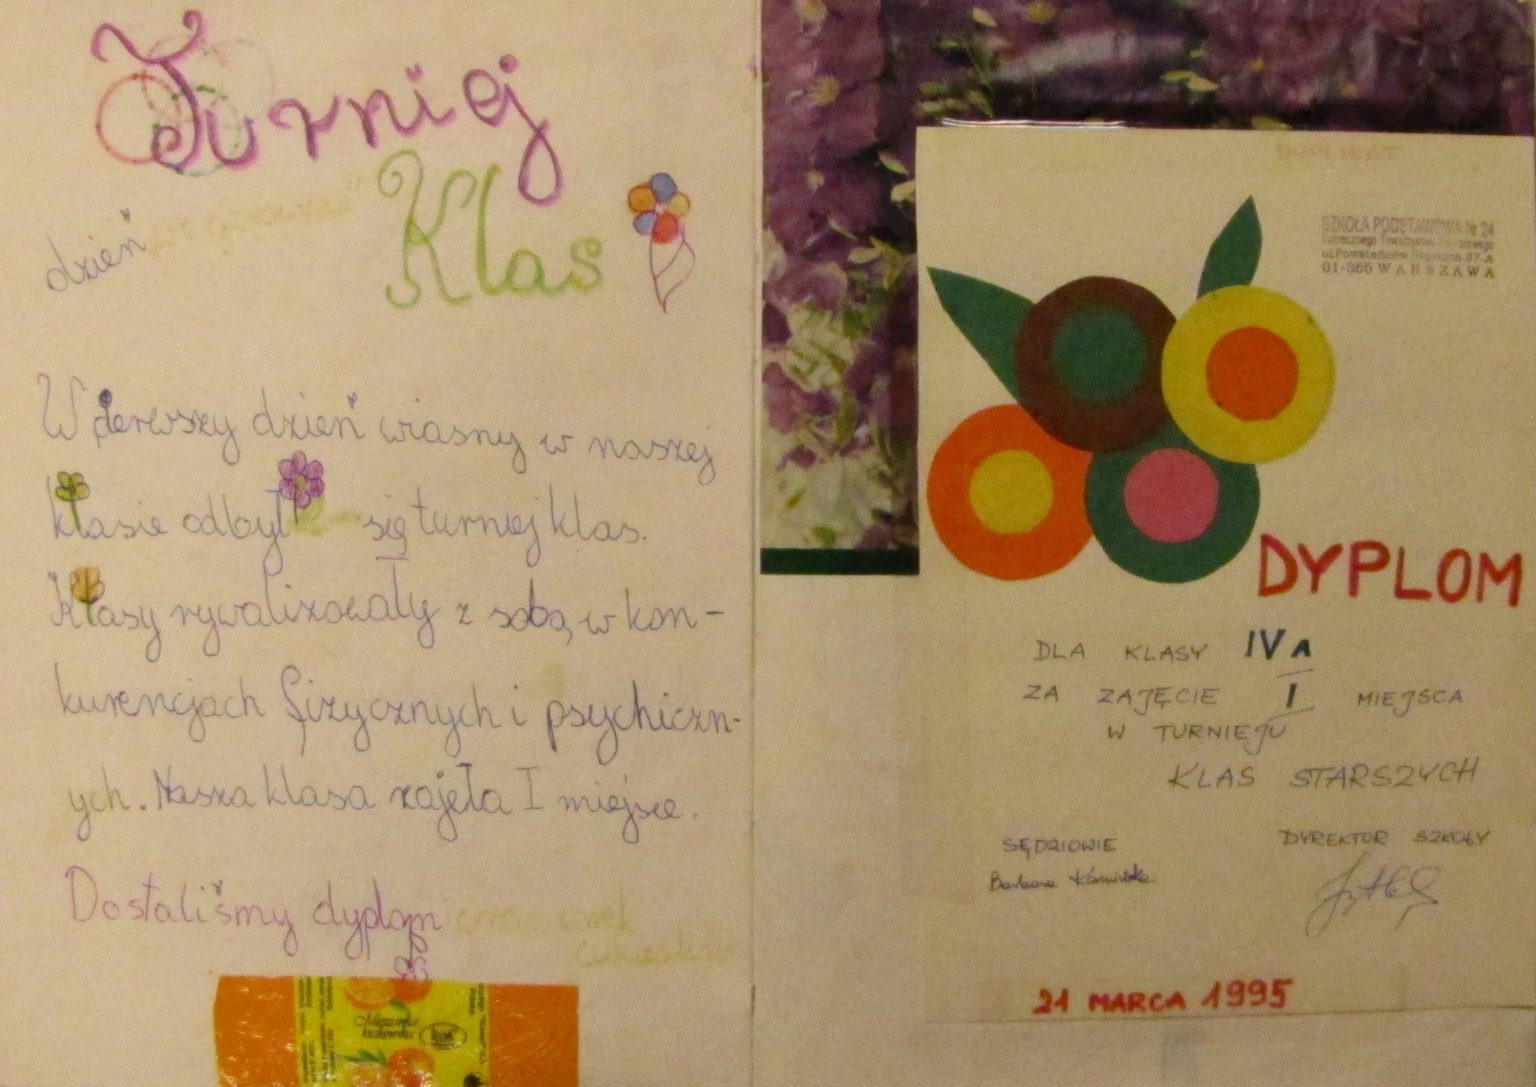 Turniej
Klas
dzień
W pierwszy dzień wiosny w naszej
klasie odbył się turniej klas.
Klasy rywalizowały z sobą w kon-
kurencjach fizycznych i psychiczn-
ych. Nasza klasa zajęła I miejsce.
Dostaliśmy dyplom
cukierków
Mieszanka
krakowska
SZKOŁA PODSTAWOWA Nr 24
Społecznego Towarzystwa Oświatowego
ul. Powstańców Śląskich 67-A
01-355 WARSZAWA
DYPLOM
DLA KLASY IVA
ZA ZAJĘCIE I MIEJSCA
W TURNIEJU
KLAS STARSZYCH
SĘDZIOWIE
Barbara
DYREKTOR SZKOŁY
21 MARCA 1995